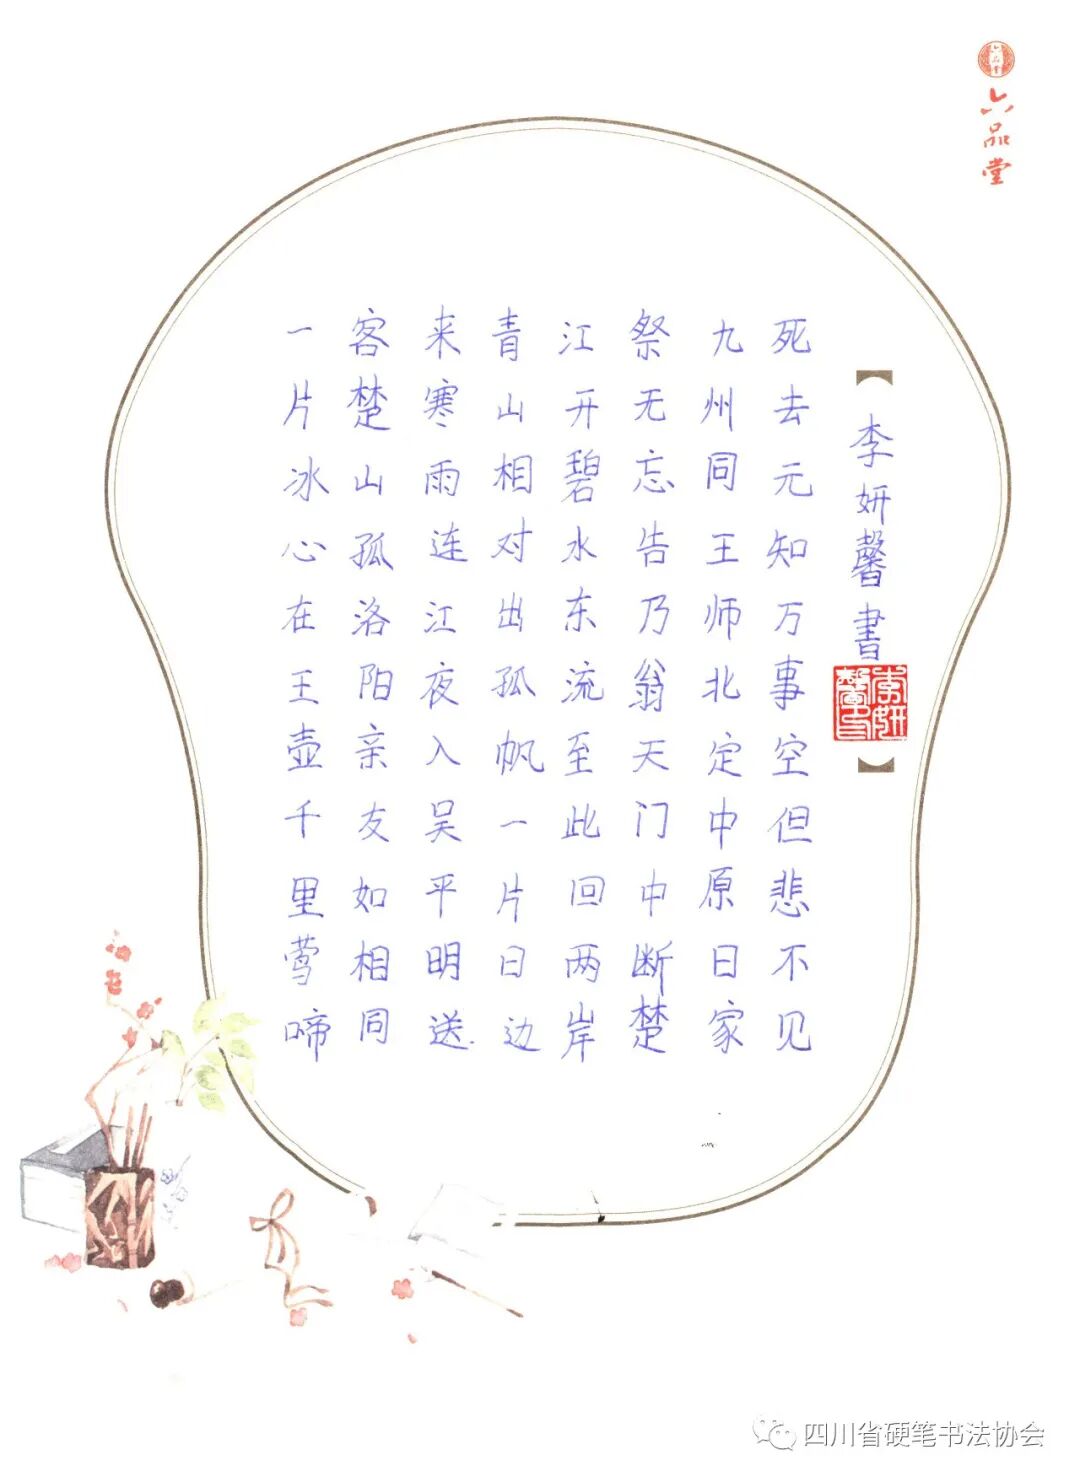 六品堂
六品堂
【李妍馨書
李妍馨印】
死去元知万事空但悲不见
九州同王师北定中原日家
祭无忘告乃翁天门中断楚
江开碧水东流至此回两岸
青山相对出孤帆一片日边
来寒雨连江夜入吴平明送
客楚山孤洛阳亲友如相同
一片冰心在王壶千里莺啼
四川省硬笔书法协会